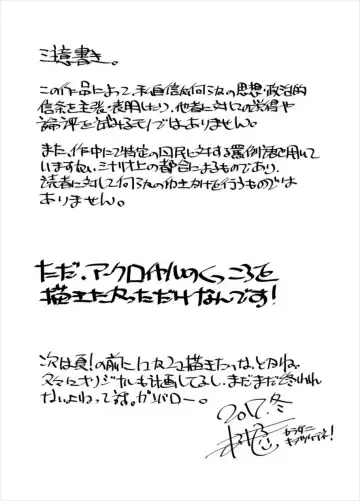 注意書き。
この作品によって、私自信が何らかの思想・政治的
信条を主張・表明したり、他者に対しての説得や
論評を試みるモノではありません。
また、作中にて特定の国民に対する罵倒语を用いて
いますがシナリオ上の都合によるものであり、
読者に対して何らかの働きかけを行うものでは
ありません。
ただ、アークロイヤルのくっころを
描きたかっただけなんです!
次は夏!の前に1、2つ描きたいな、とかね。
さらにオリジナルも計画してるし、まだまだ終われ
ないよねって話。ガンバロー。
2017.冬